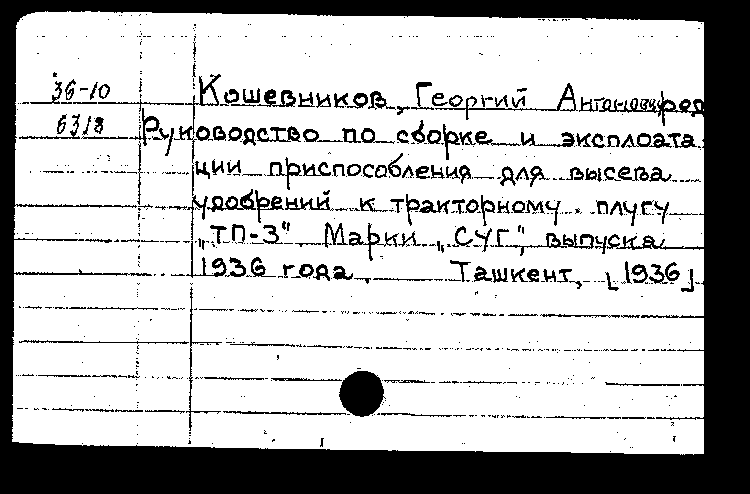 36-10 Кошевников, Георгий Антонович, ред
6318 Руководство по сборке и эксплоата
ции приспособления для высева
удобрений к тракторному плугу
„ТП-3“ Марки „СУГ“, выпуска
1936 года. Ташкент, [1936]